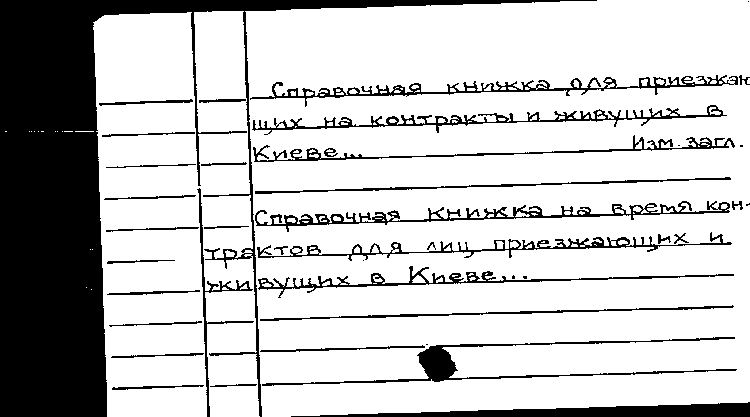 Справочная книжка для приезжаю
щих на контракты и живущих в
Киеве... Изм. загл.
Справочная книжка на время кон-
трактов для лиц приезжающих и
живущих в Киеве...